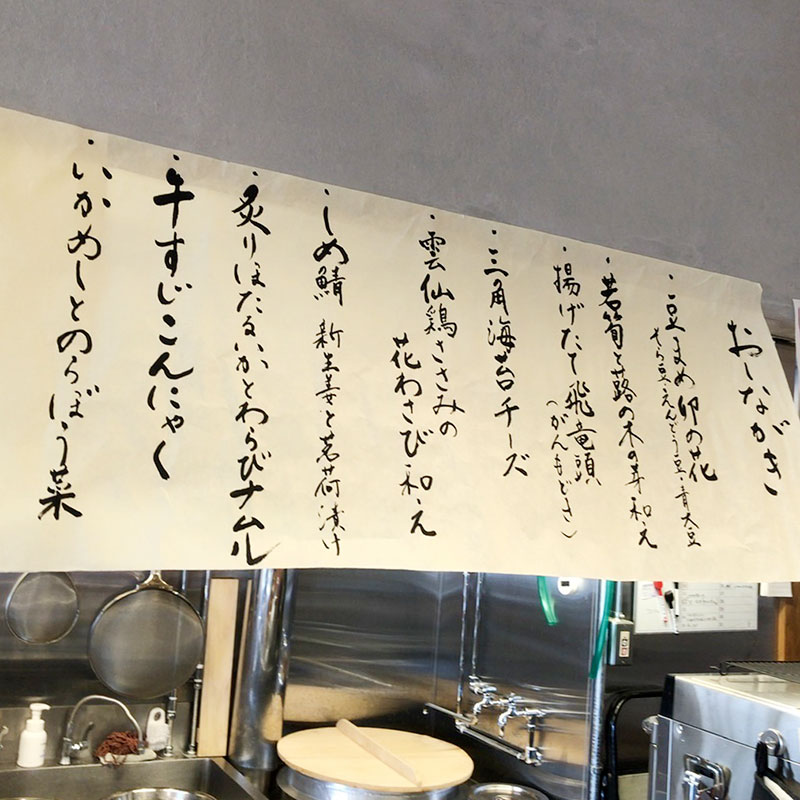 おしながき
・豆まめ卯の花
そら豆・えんどう豆・青大豆
・若筍と蕗の木の芽和え
・揚げたて飛竜頭
(がんもどき)
・三角海苔チーズ
・雲仙鶏ささみの
花わさび和え
・しめ鯖 新生姜と茗荷漬け
・炙りほたるいかとわらびナムル
・牛すじこんにゃく
・いかめしとのらぼう菜